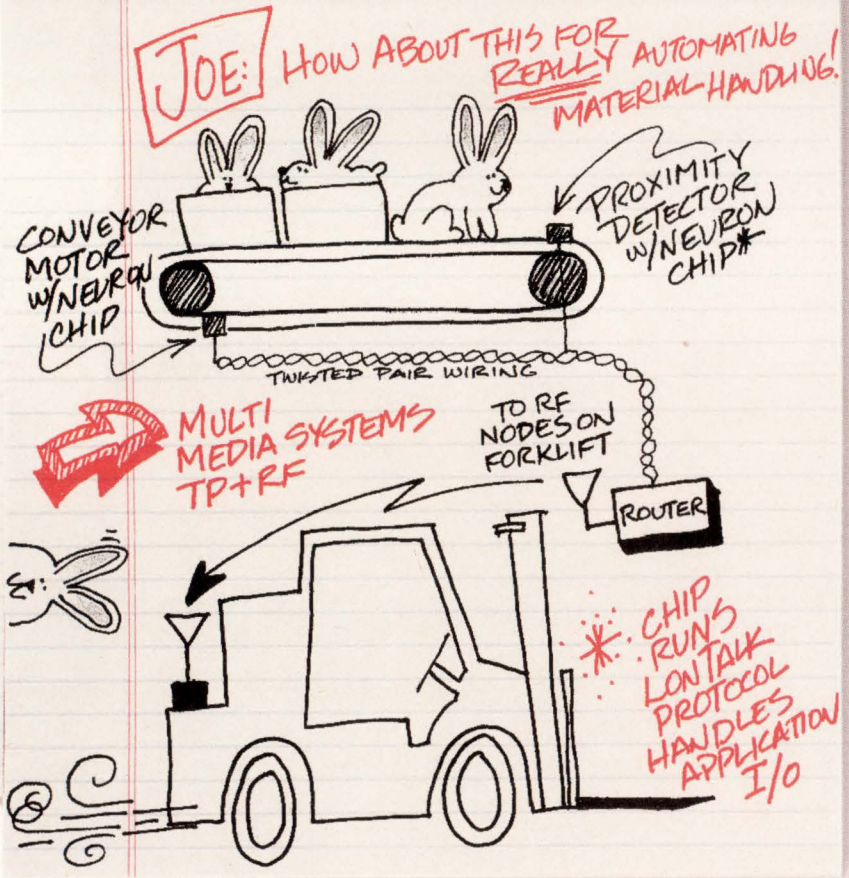 JOE: HOW ABOUT THIS FOR
REALLY AUTOMATING
MATERIAL HANDLING!
CONVEYOR
MOTOR
W/NEURON
CHIP
PROXIMITY
DETECTOR
W/NEURON
CHIP*
TWISTED PAIR WIRING
MULTI
MEDIA SYSTEMS
TP+RF
TO RF
NODES ON
FORKLIFT
ROUTER
* CHIP
RUNS
LONTALK
PROTOCOL
HANDLES
APPLICATION
I/O